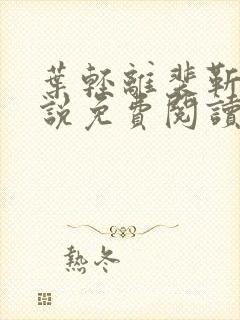 葉輕離裴靳
說免費閱讀
熱冬